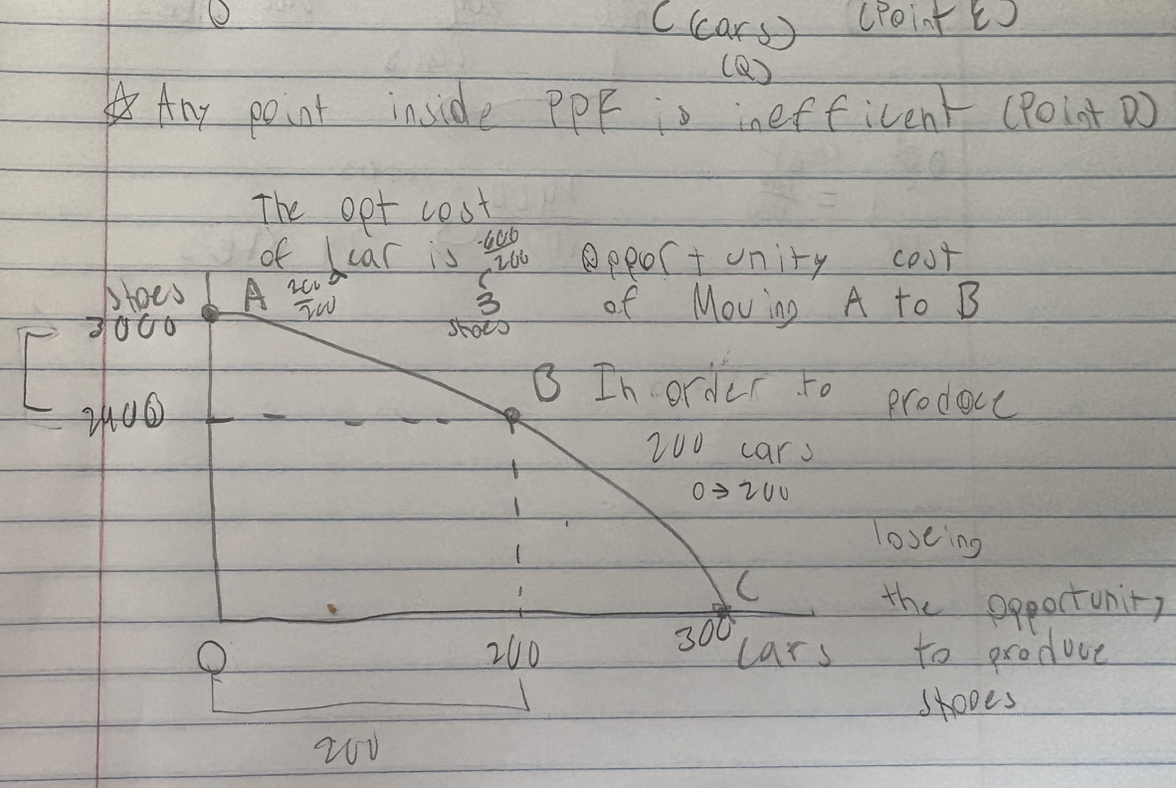 C (cars) (Point E)
(Q)
☆ Any point inside PPF is inefficent (Point D)
The opt cost
of 1 car is 600/200 Opportunity cost
shoes A 200/200 3 of Moving A to B
3000 shoes
B In order to produce
2400
200 cars
0→200
loseing
C the opportunity
0 200 300 cars to produce
shoes
200